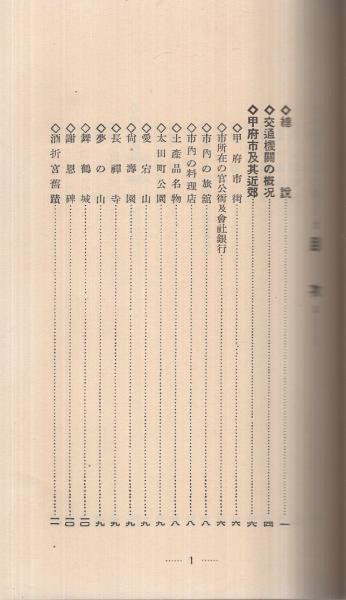 目次
◇總說……一
◇交通機關の概况……四
◇甲府市及其近郊……六
◇甲府市街……六
◇市所在の官公衙及會社銀行……六
◇市內の旅館……八
◇市內の料理店……八
◇土產品名物……八
◇太田町公園……九
◇愛宕山……九
◇尙濤園……九
◇長禪寺……九
◇夢の山……九
◇舞鶴城……一〇
◇謝恩碑……一〇
◇酒折宮舊蹟……一一
…… 1 ……